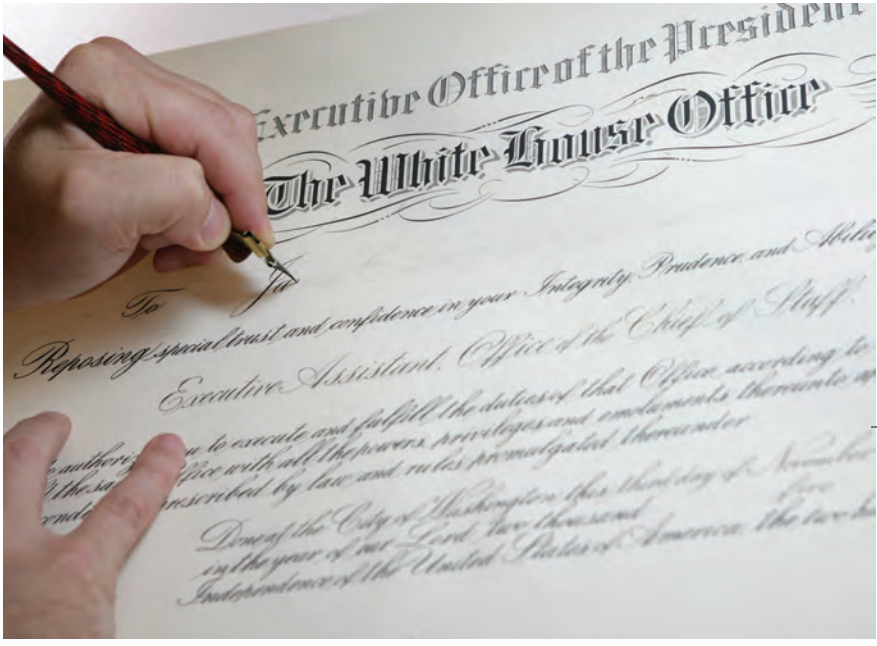 Executive Office of the President
The White House Office
To Ja
Reposing special trust and confidence in your Integrity, Prudence and
Executive Assistant, Office of the Chief of Staff.
to execute and fulfill the duties of that Office according to
with all the powers, privileges and emoluments thereunto
by law and rules promulgated thereunder.
Done at the City of Washington this third day of November
in the year of our Lord two thousand five
Independence of the United States of America the two